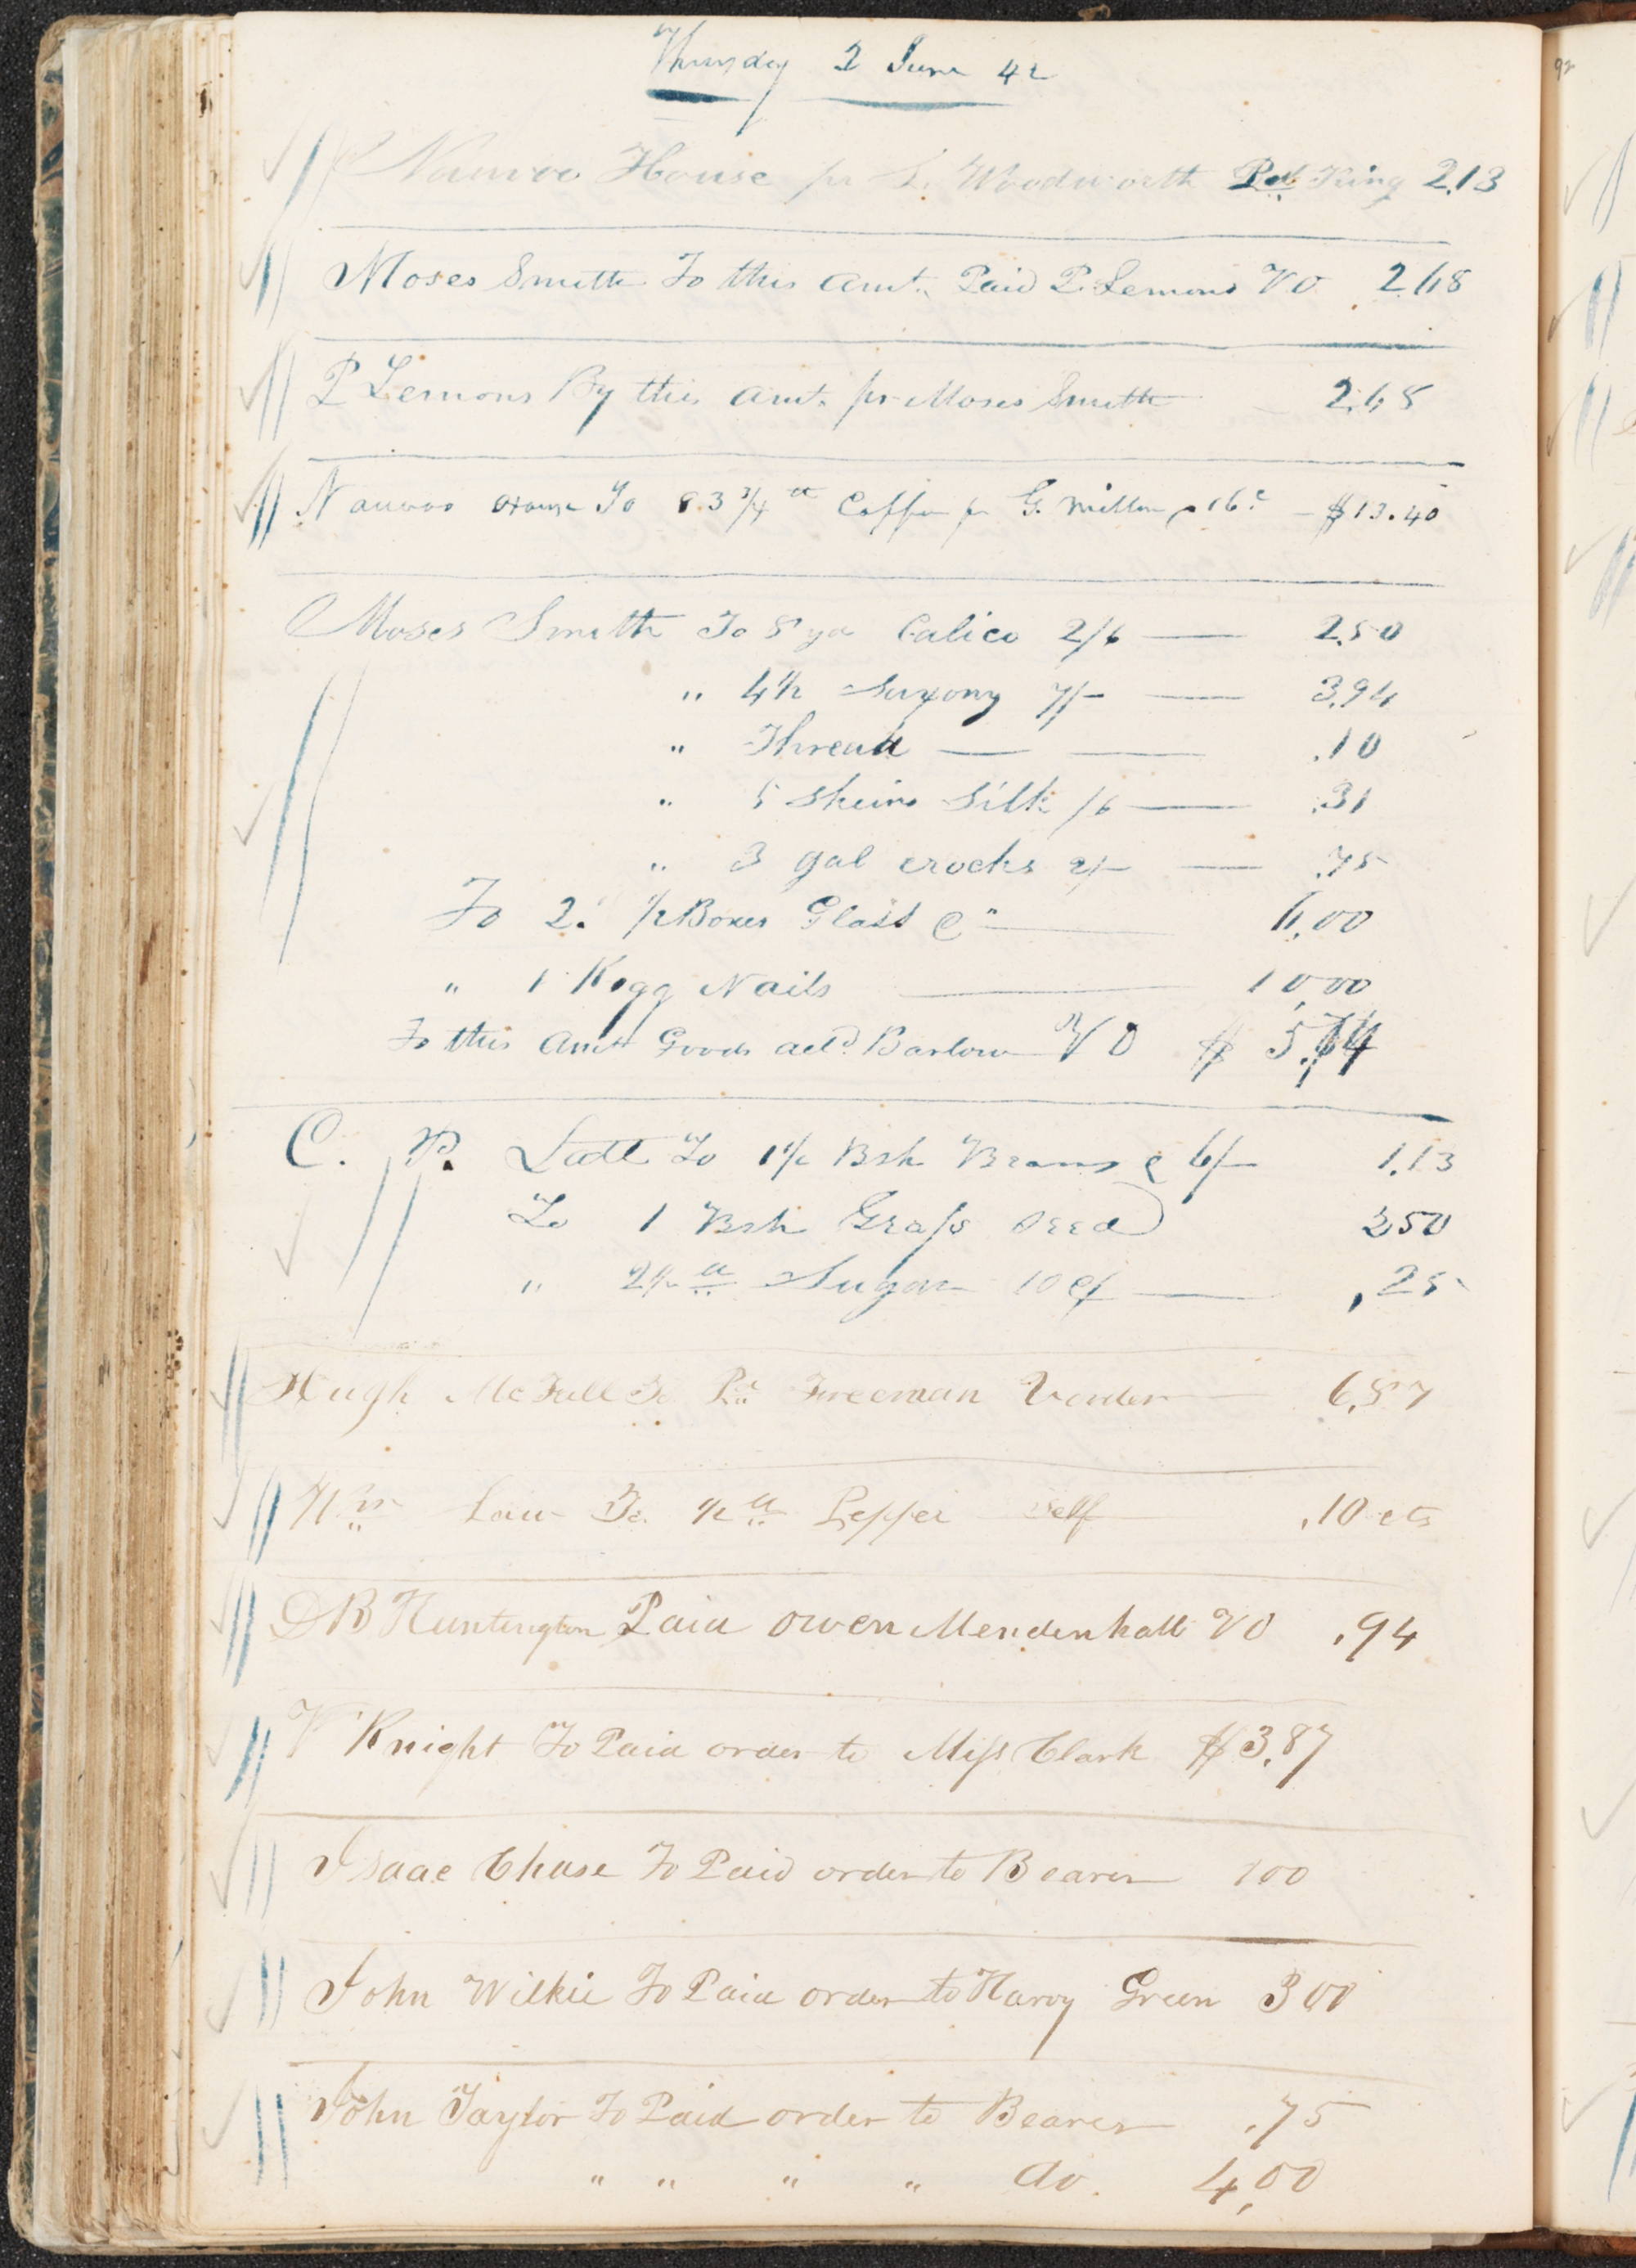 Thursday 2 June 42
Nauvoo House pr L. Woodworth Pd King 2.13
Moses Smith To this amt. Paid P. Lemons VO 2.68
P Lemons By this amt. pr Moses Smith 2.68
Nauvoo House To 83 3/4 ℔ Coffee pr G. Miller 16c $13.40
Moses Smith To 8 yd Calico 2/6 — 2.50
" 4 1/2 Saxony 7/- — 3.94
" Thread — — .10
" 5 Skeins Silk /6 — .31
" 3 gal crocks 2/- — .75
To 2. 1/2 Boxes Glass @ " 6.00
" 1 Kegg Nails 10,00
To this Amt Goods deld Barlow VO $ 5.74
C. P. Lott To 1 1/2 Bsh Beans @ 6/- 1.13
To 1 Bsh Grass Seed 2,50
" 2 1/2 ℔ Sugar 10 c/ — ,25
Hugh McFall To Pd Freeman 6,57
Wm Law To 1/2 ℔ Pepper Self .10 cts
D B Huntington Paid Owen Mendenhall VO .94
V Knight To Paid order to Miss Clark $3.87
Isaac Chase To Paid order to Bearer 100
John Wilkie To Paid order to Harvy Green 300
John Taylor To Paid order to Bearer .75
" " " " do. 4,00
92